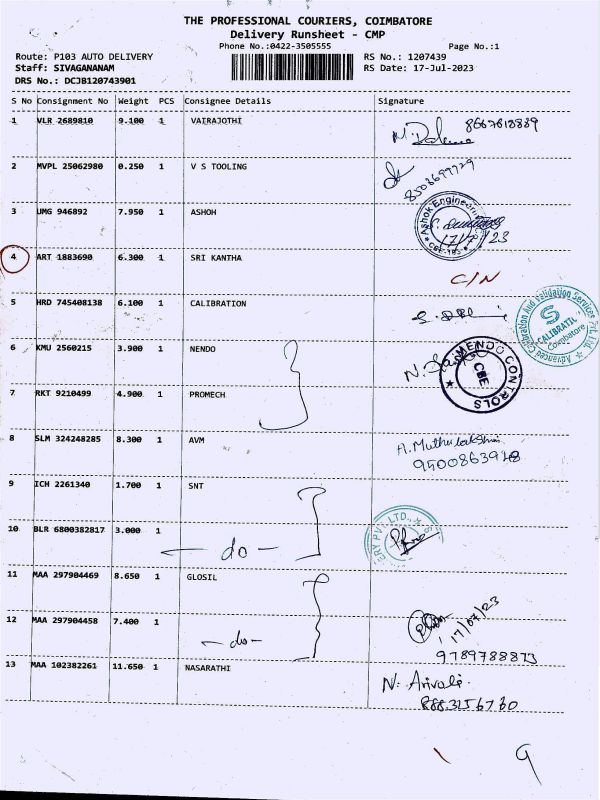 THE PROFESSIONAL COURIERS, COIMBATORE
Delivery Runsheet - CMP
Phone No.:0422-3505555
Page No.:1
Route: P103 AUTO DELIVERY
RS No.: 1207439
Staff: SIVAGANANAM
RS Date: 17-Jul-2023
DRS No.: DCJB120743901
S No Consignment No Weight PCS Consignee Details Signature
1 VLR 2689810 9.100 1 VAIRAJOTHI
8667618839
2 MVPL 25062980 0.250 1 V S TOOLING
8508699729
3 UMG 946892 7.950 1 ASHOH
Ashok Engineering
17/7/23
4 ART 1883690 6.300 1 SRI KANTHA
C/N
5 HRD 745408138 6.100 1 CALIBRATION
Advanced Calibration And Validation Services Pvt. Ltd.
CALIBRATIO
Coimbatore
6 KMU 2560215 3.900 1 NENDO
MENDO CONTROLS
CBE
7 RKT 9210499 4.900 1 PROMECH
8 SLM 324248285 8.300 1 AVM
A. Muthulakshmi
9500863948
9 ICH 2261340 1.700 1 SNT
10 BLR 6800382817 3.000 1
- do -
PVT. LTD.,
11 MAA 297904469 8.650 1 GLOSIL
12 MAA 297904458 7.400 1
- do -
17/07/23
9789788873
13 MAA 102382261 11.650 1 NASARATHI
N. Arivale.
8883256730
9